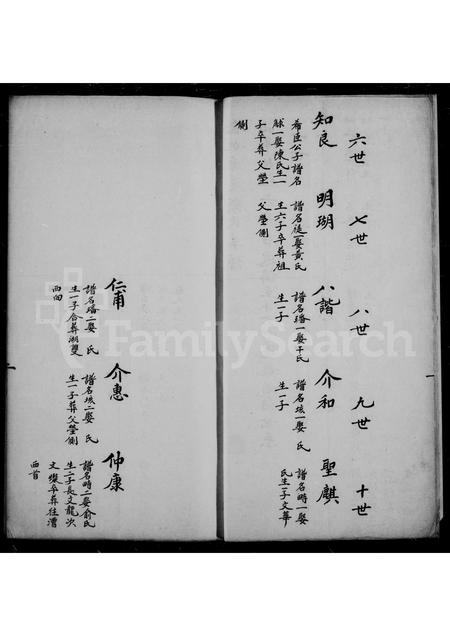 六世
七世
八世
九世
十世
知良
希臣公子譜名
賕一娶陳氏生一
子卒葬父塋
側
明瑚
譜名一娶黃氏
生六子卒葬祖
父塋側
八諧
譜名璠一娶干氏
生一子
介和
譜名垓一娶 氏
生一子
聖麒
譜名時一娶
氏生一子文華
仁甫
譜名璠二娶 氏
生一子合葬湖雙
西凹
介惠
譜名垓二娶 氏
生一子葬父塋側
仲康
譜名時二娶俞氏
生二子長文龍次
文燦卒葬往漕
西首
FamilySearch